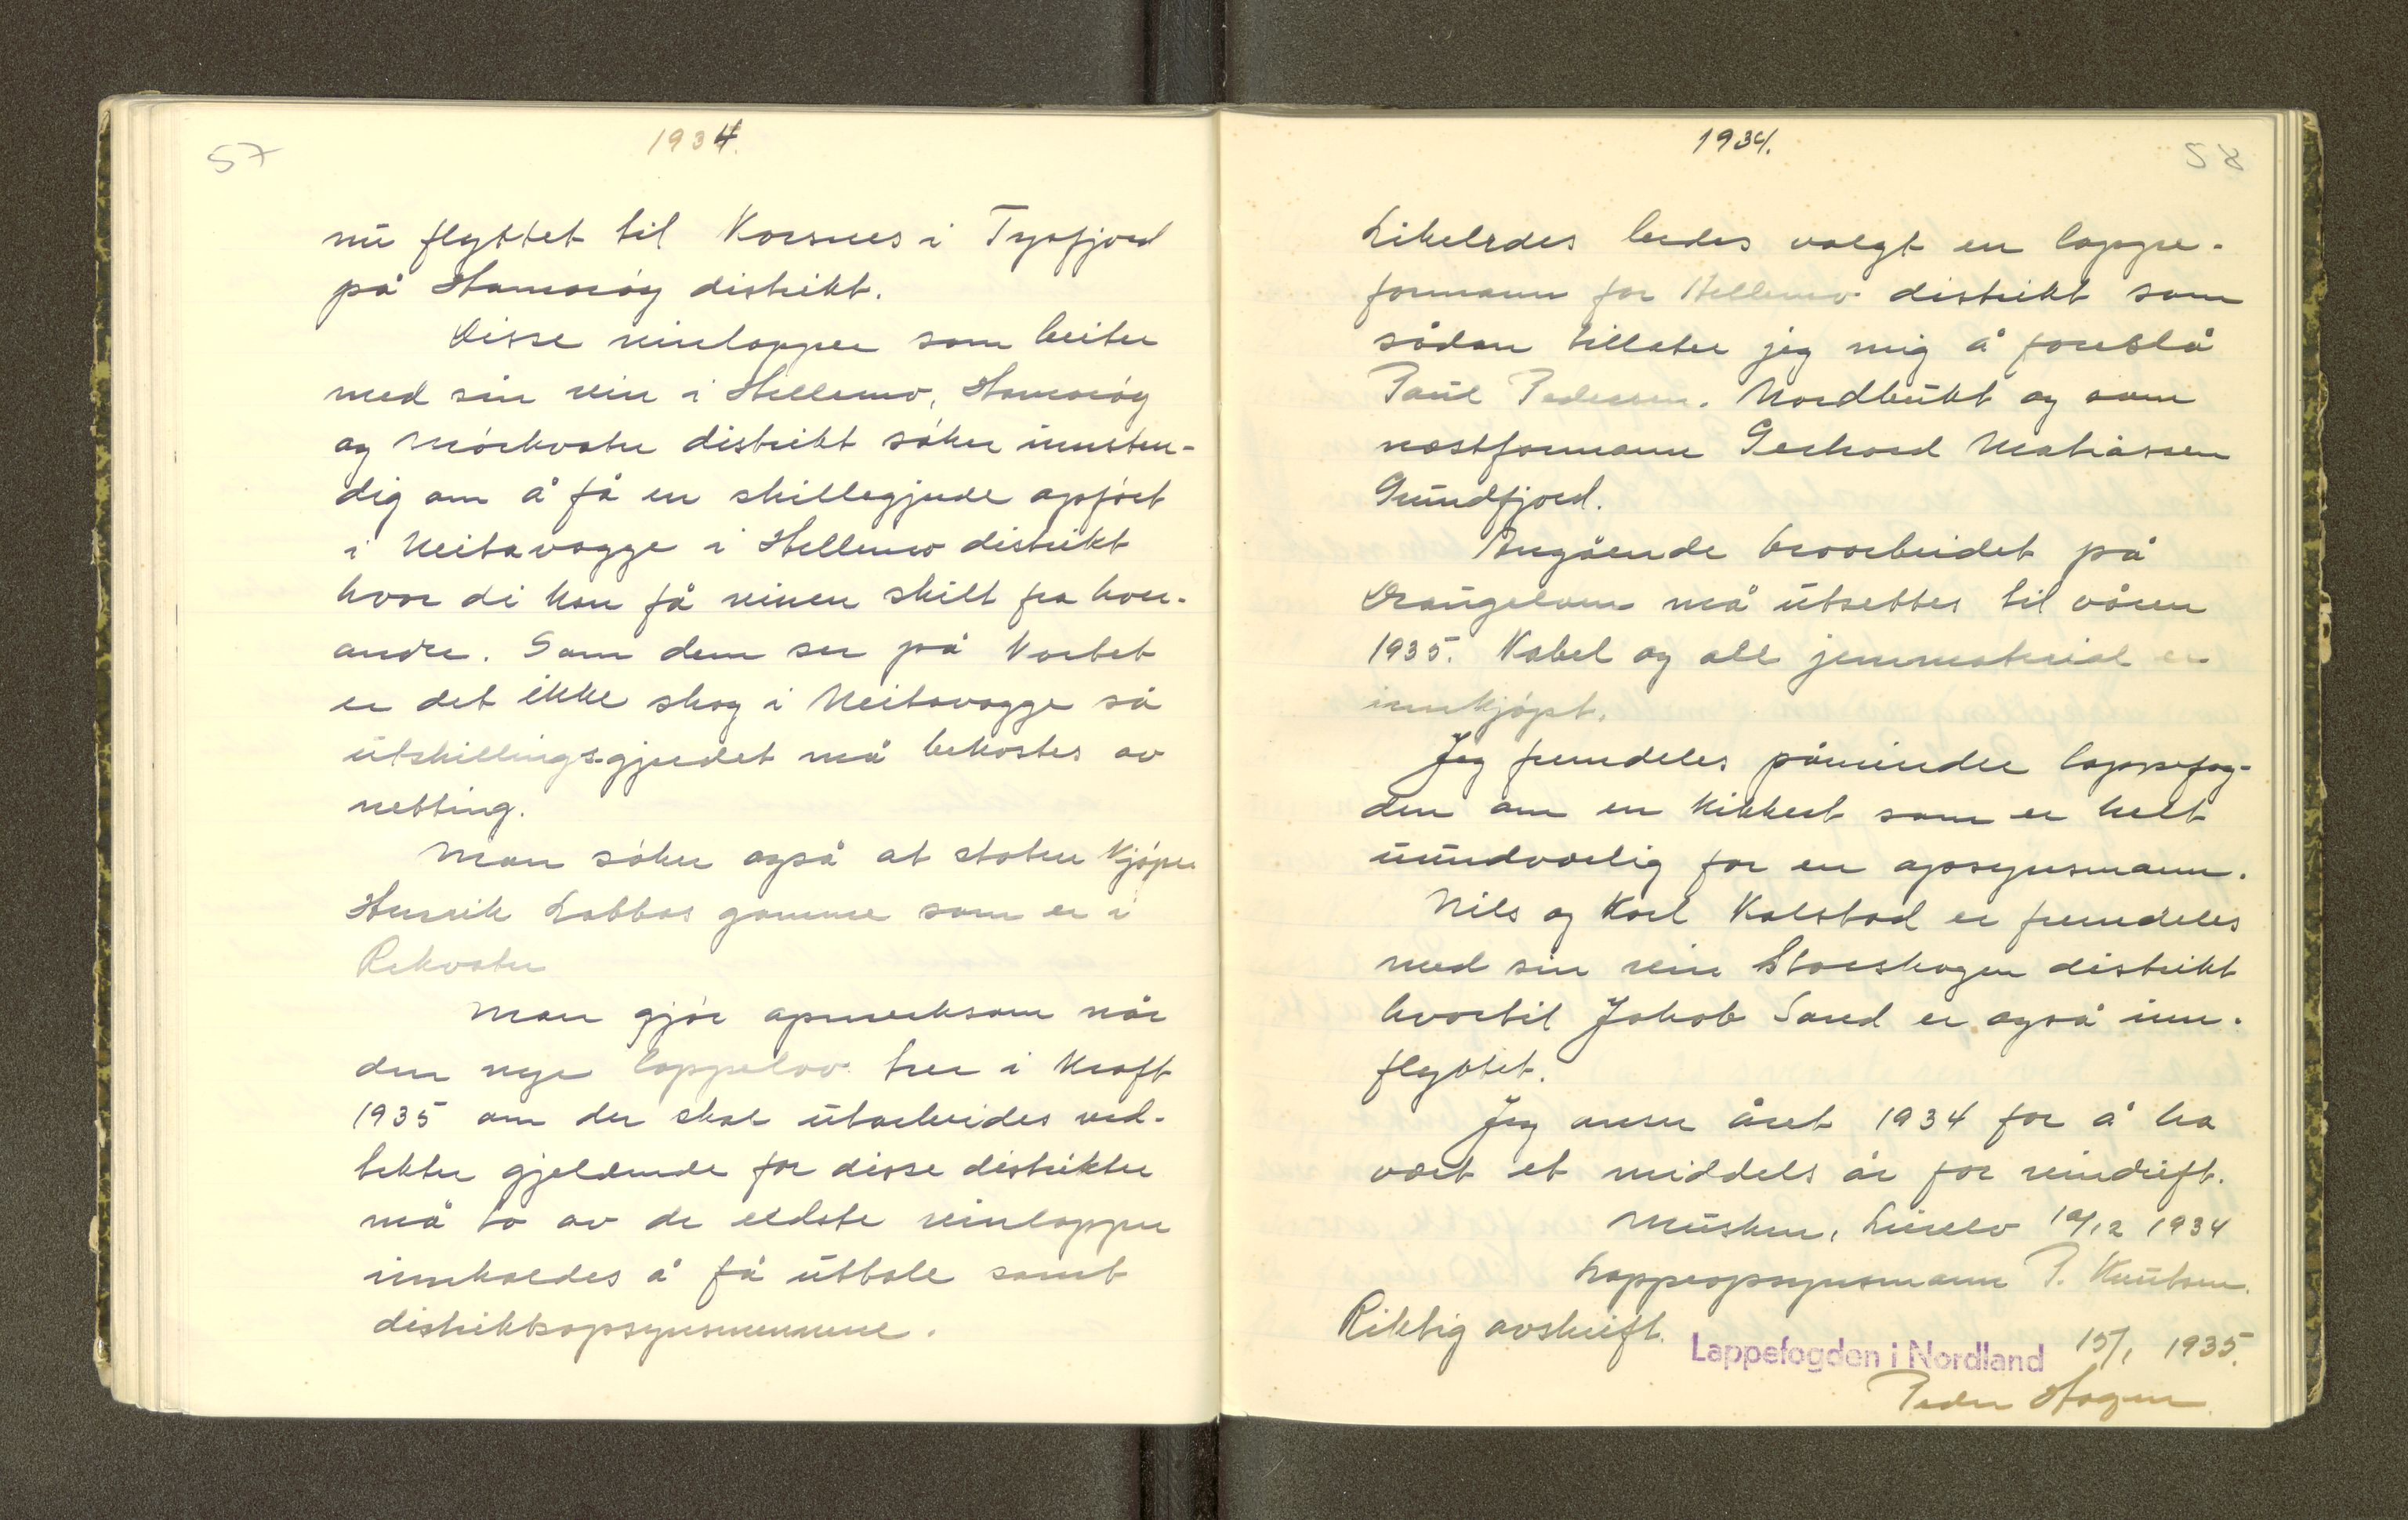 57
1934.
nu flyttet til Korsnes i Tysfjord
på Hamarøy distrikt.
Disse reinlapper som beiter
med sin rein i Hellemo, Hamarøy
og Mørkvatn distrikt søker innsten-
dig om å få en skillegjerde opført
i Neitavagge i Hellemo distrikt
hvor di kan få reinen skilt fra hver-
andre. Som dem ser på Kartet
er det ikke skog i Neitavagge så
utskillingsgjerdet må bekostes av
netting.
Man søker også at staten kjøper
Henrik Labbas gamme som er i
Rekvatn
Man gjør opmerksom når
den nye lappelov trer i kraft
1935 om der skal utarbeides ved-
tekter gjeldende for disse distrikter
må to av de eldste reinlapper
innkaldes å få uttale samt
distriktsopsynsmennene.
1934.
58
Likeledes bedes valgt en lappe-
formann for Hellemo distrikt som
sådan tillater jeg mig å foreslå
Paul Pedersen. Nordbukt og som
næstformann Gerhard Matiassen
Grundfjord.
Angående broarbeidet på
Draugelven må utsettes til våren
1935. Kabel og all jernmaterial er
innkjøpt.
Jeg fremdeles påminder lappefog-
den om en kikkert som er helt
uundværlig for en opsynsmann.
Nils og Karl Kalstad er fremdeles
med sin rein Storskogen distrikt
hvortil Jakob Sard er også inn-
flyttet.
Jeg anser året 1934 for å ha
vært et middels år for reindrift.
Musken, 12 1934
Lappeopsynsmann P. Knutsen.
Riktig avskrift.
Lappefogden i Nordland 15/1 1935.
Peder Hagen